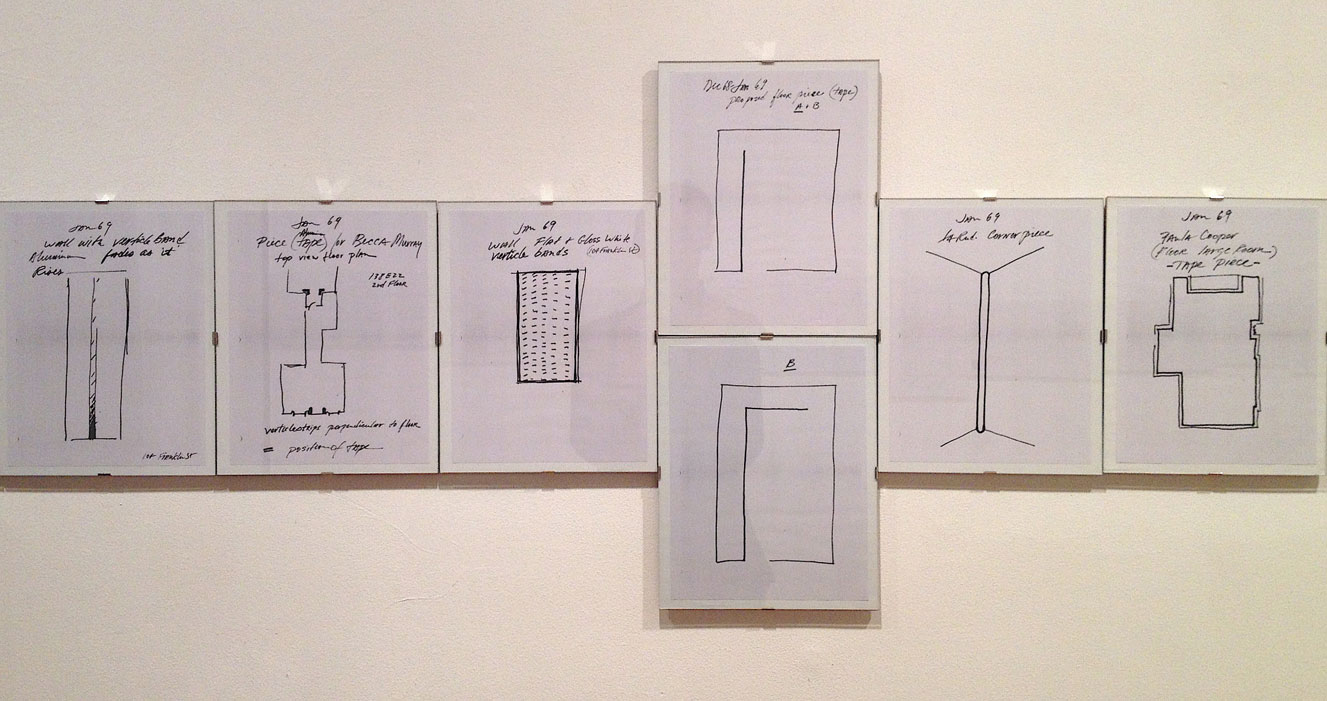 Jan 69
Wall with verticle band
Aluminum fades as it
Rises
101 Franklin St
Jan 69
Alum
Piece (tape) for Becca Murray
top view floor plan
138 E 22
2nd Floor
verticle strips perpendicular to floor
= position of tape
Jan 69
Wall Flat + Gloss White
verticle bands (101 Franklin St)
Dec 68 - Jan 69
proposed floor piece (tape)
A + B
B
Jan 69
Corner piece
Jan 69
Paula Cooper
(Floor large Room)
- Tape Piece -